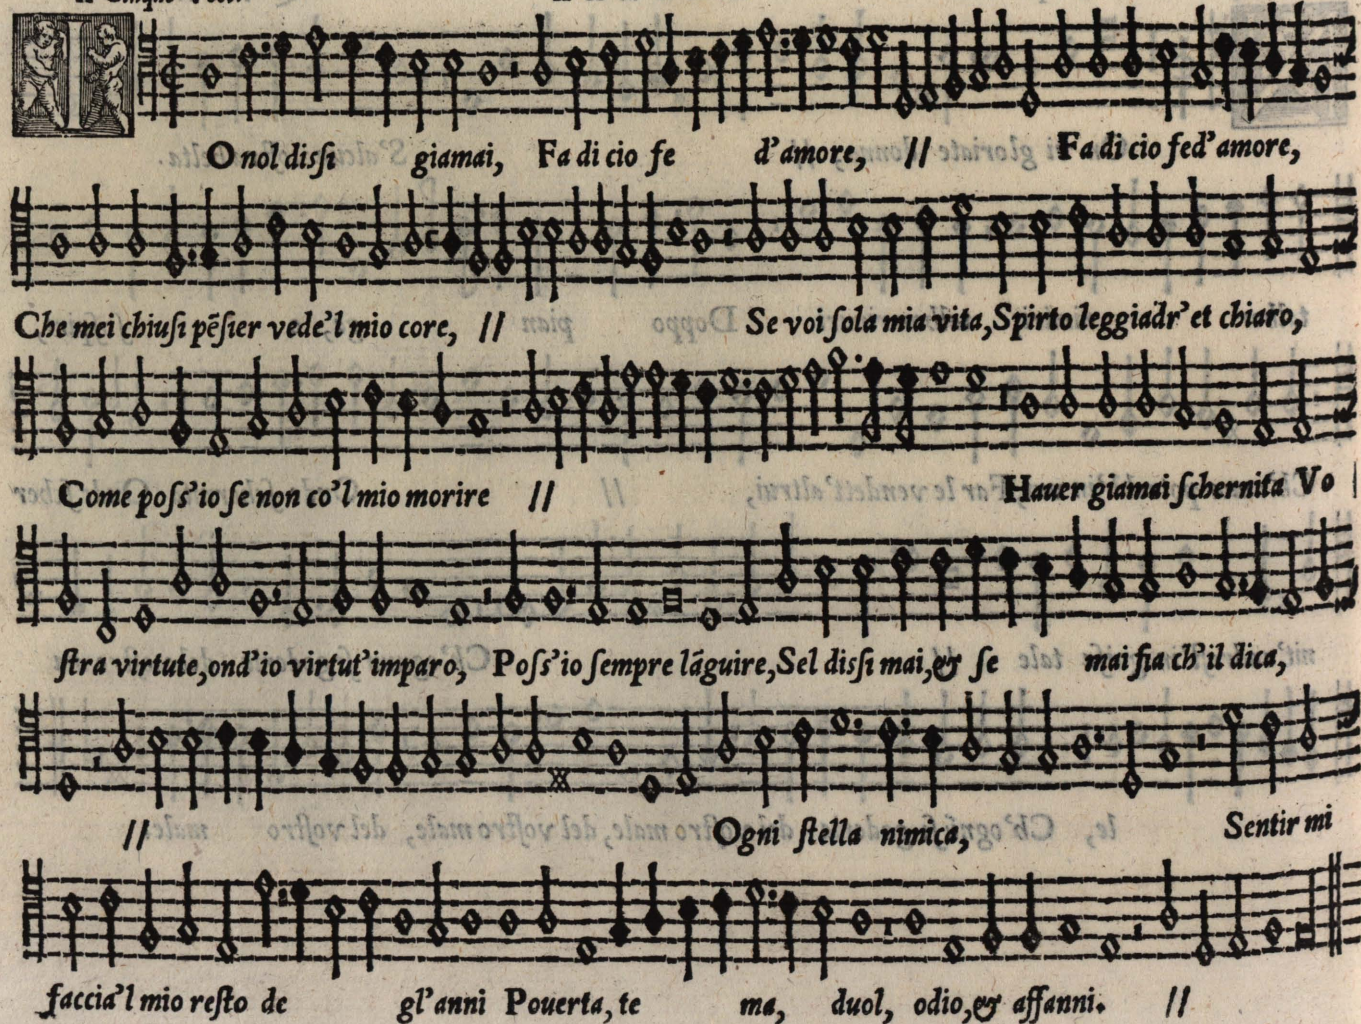 IO nol dissi giamai, Fa di cio fe d'amore, // Fa di cio fed'amore,
Che mei chiusi pẽsier vede'l mio core, // Se voi sola mia vita, Spirto leggiadr' et chiaro,
Come poss'io se non co'l mio morire // Hauer giamai schernita Vo
stra virtute, ond'io virtut'imparo, Poss'io sempre lãguire, Sel dissi mai, & se mai fia ch'il dica,
// Ogni stella nimica, Sentir mi
faccia'l mio resto de gl'anni Pouerta, te ma, duol, odio, & affanni. //